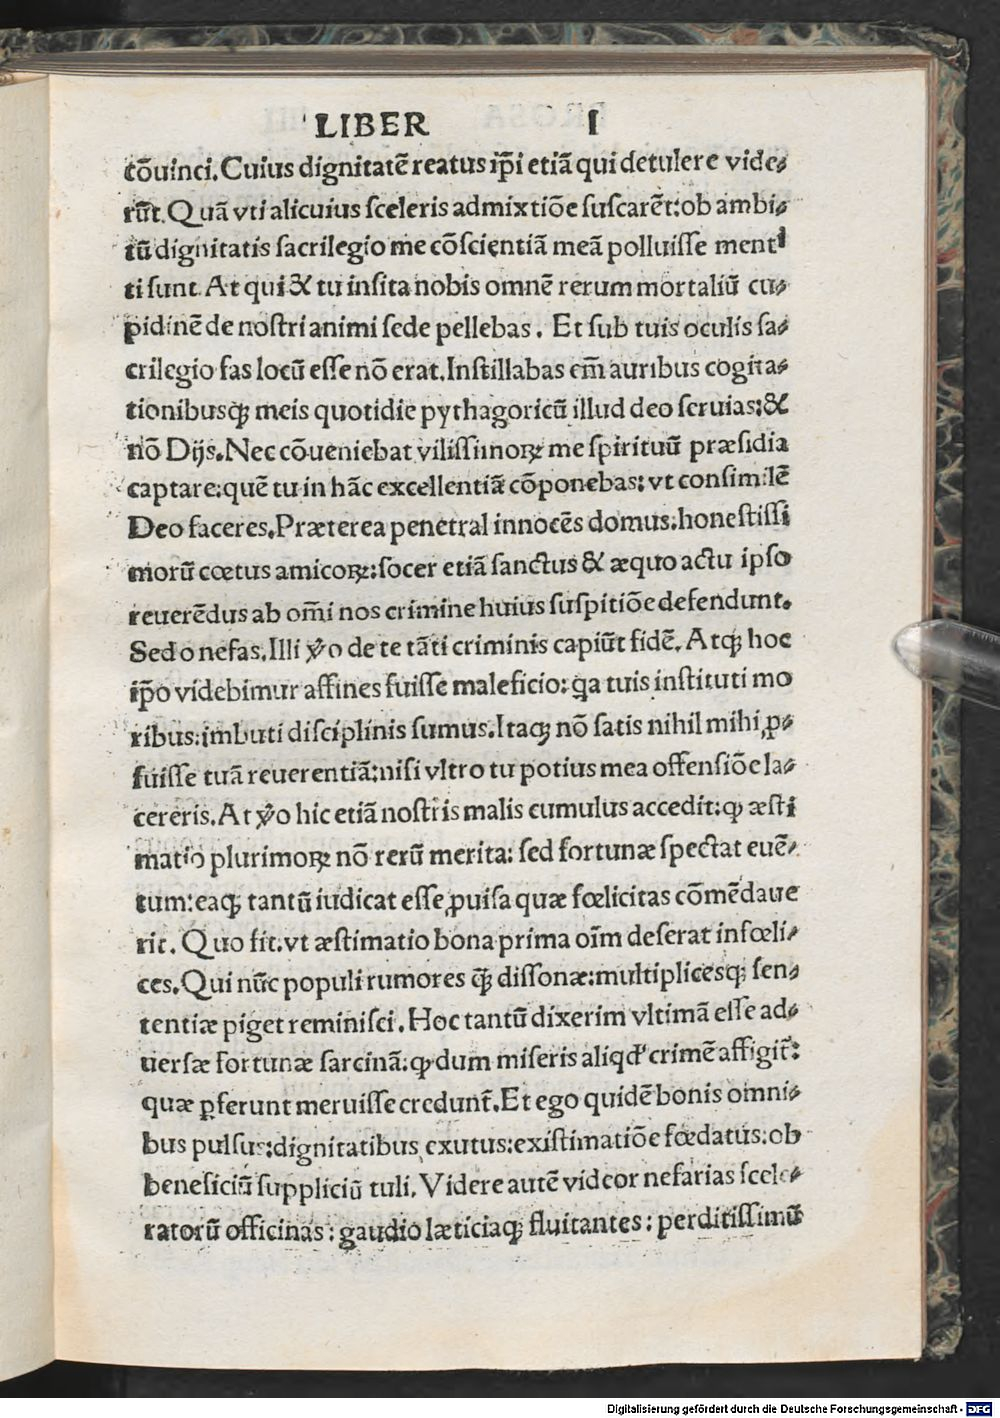 LIBER I
cõuinci. Cuius dignitatẽ reatus ip̃i etiã qui detulere vide⸗
rũt. Quã vti alicuius sceleris admixtiõe fuscarẽt: ob ambi⸗
tũ dignitatis sacrilegio me cõscientiã meã polluisse menti
ti sunt. At qui & tu insita nobis omnẽ rerum mortaliũ cu⸗
pidinẽ de nostri animi sede pellebas. Et sub tuis oculis sa⸗
crilegio fas locũ esse nõ erat. Instillabas em̃ auribus cogita⸗
tionibusqꝫ meis quotidie pythagoricũ illud deo seruias: &
nõ Dijs. Nec cõueniebat vilissimoꝝ me spirituũ præsidia
captare: quẽ tu in hãc excellentiã cõponebas: vt consimilẽ
Deo faceres. Præterea penetral innocẽs domus: honestissi
morũ cœtus amicoꝝ: socer etiã sanctus & æquo actu ipso
reuerẽdus ab om̃i nos crimine huius suspitiõe defendunt.
Sed o nefas. Illi ṽo de te tãti criminis capiũt fidẽ. Atqꝫ hoc
ip̃o videbimur affines fuisse maleficio: qa tuis instituti mo
ribus: imbuti disciplinis sumus. Itaqꝫ nõ satis nihil mihi ꝓ⸗
fuisse tuã reuerentiã: nisi vltro tu potius mea offensiõe la⸗
cereris. At ṽo hic etiã nostris malis cumulus accedit: ꝙ æsti
matio plurimoꝝ nõ rerũ merita: sed fortunæ spectat euẽ⸗
tum: eaqꝫ tantũ iudicat esse ꝓuisa quæ fœlicitas cõmẽdaue
rit. Quo fit. vt æstimatio bona prima oĩm deserat infœli⸗
ces. Qui nũc populi rumores q̃ꝫ dissonæ: multiplicesqꝫ sen⸗
tentiæ piget reminisci. Hoc tantũ dixerim vltimã esse ad⸗
uersæ fortunæ sarcinã: ꝙ dum miseris aliqd' crimẽ affigit̃:
quæ ꝑferunt meruisse credunt̃. Et ego quidẽ bonis omni⸗
bus pulsus: dignitatibus exutus: existimatiõe fœdatus: ob
beneficiũ suppliciũ tuli. Videre autẽ videor nefarias scele⸗
ratorũ officinas: gaudio læticiaqꝫ fluitantes: perditissimũ
Digitalisierung gefördert durch die Deutsche Forschungsgemeinschaft - DFG